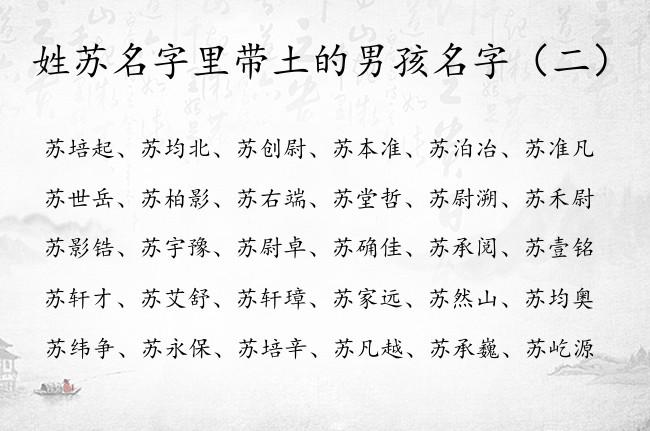 姓苏名字里带土的男孩名字（二）
苏培起、苏均北、苏创尉、苏本准、苏泊冶、苏准凡
苏世岳、苏柏影、苏右端、苏堂哲、苏尉溯、苏禾尉
苏影锆、苏宇豫、苏尉卓、苏确佳、苏承阅、苏壹铭
苏轩才、苏艾舒、苏轩璋、苏家远、苏然山、苏均奥
苏纬争、苏永保、苏培辛、苏凡越、苏承巍、苏屹源